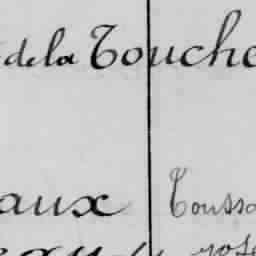 de la Touche
aux Toussa